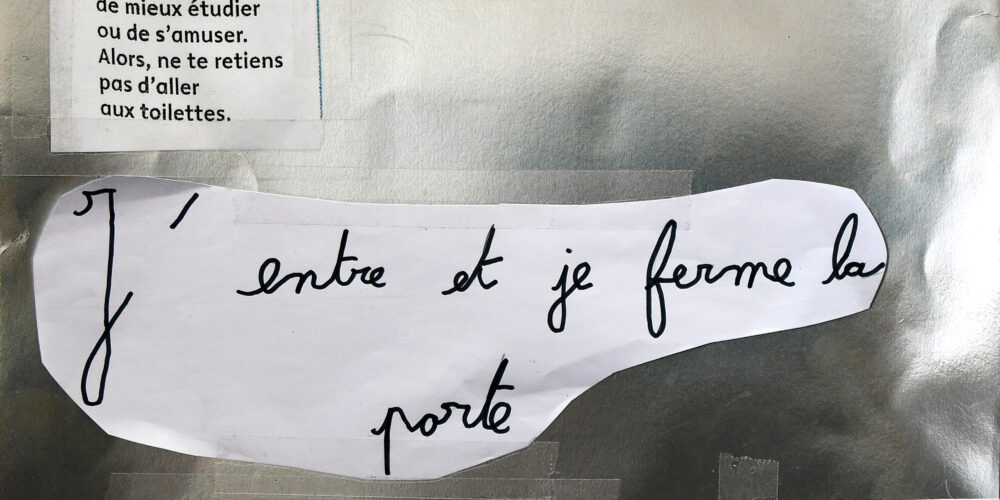 de mieux étudier
ou de s'amuser.
Alors, ne te retiens
pas d'aller
aux toilettes.
J' entre et je ferme la
porte